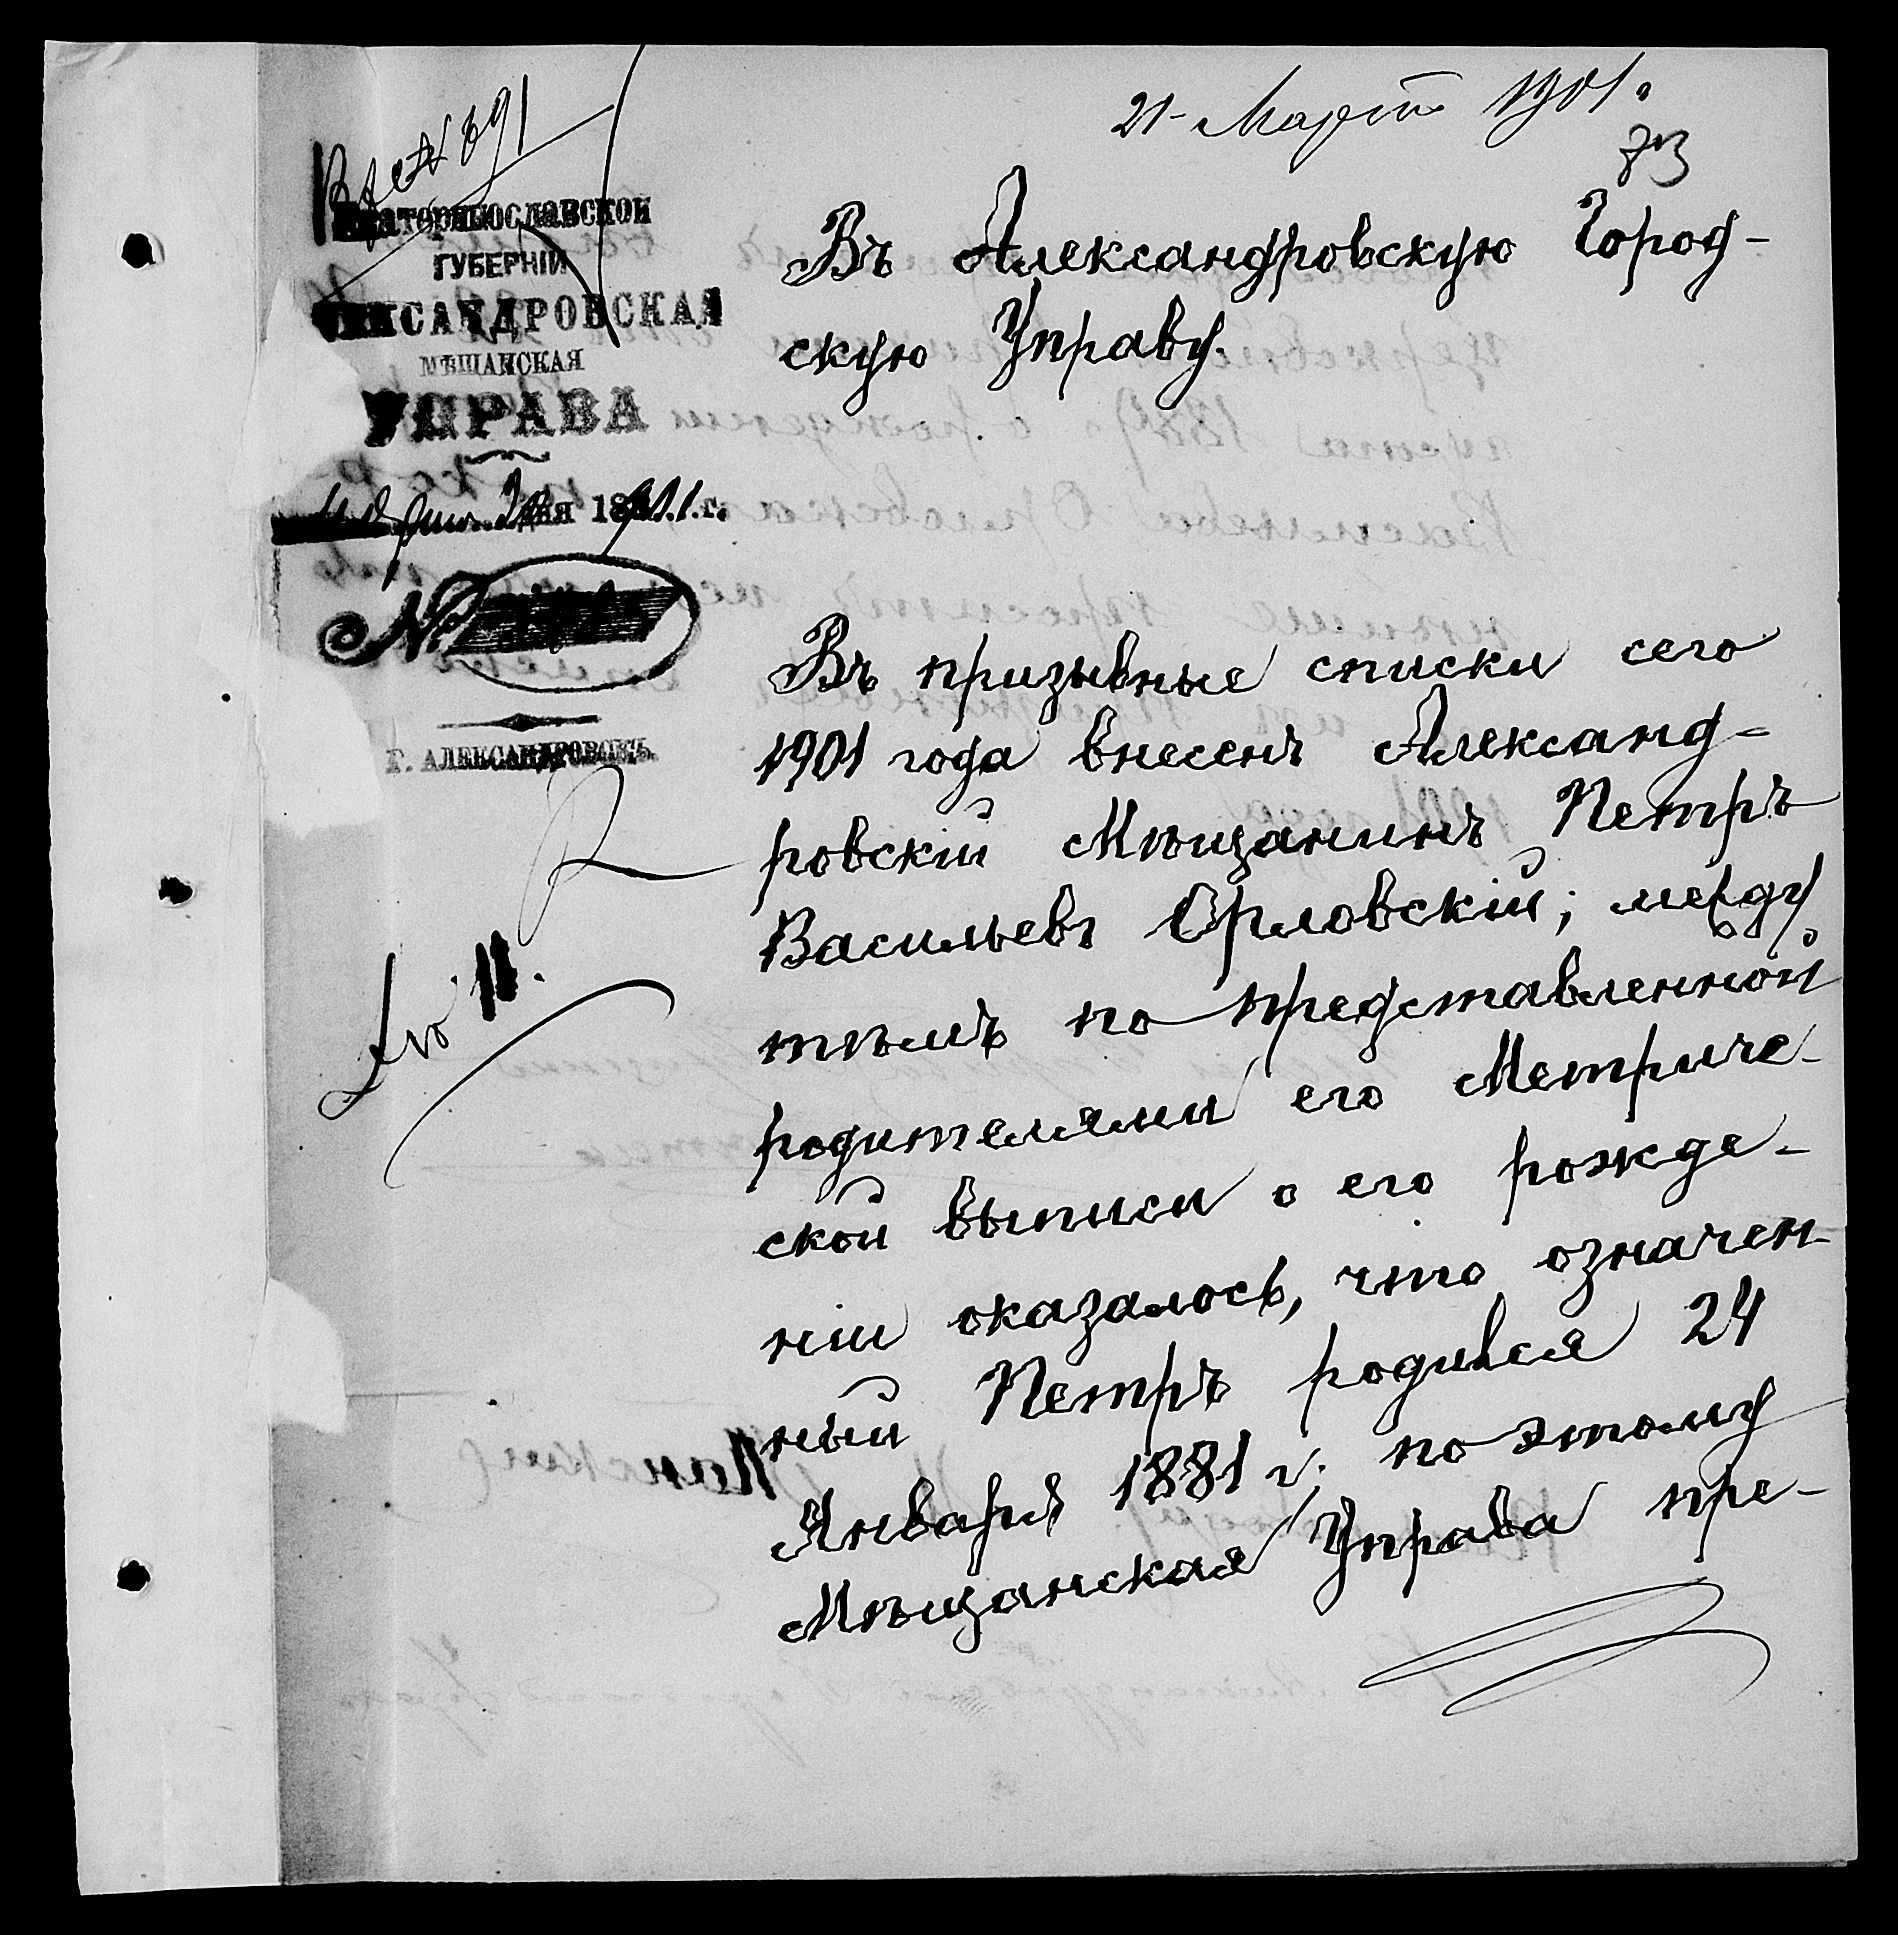 21 Марта 1901 г.
73
Екатеринославской
ГУБЕРНІИ
АЛЕКСАНДРОВСКАЯ
МѢЩАНСКАЯ
УПРАВА
дня 1901 г.
№
Г. АЛЕКСАНДРОВСКЪ.
Въ Александровскую Город-
скую Управу.
Въ призывные списки сего
1901 года внесенъ Александ-
ровскій Мѣщанинъ Петръ
Васильевъ Орловскій; между
тѣмъ по представленной
родителями его Метриче-
ской выписи о его рожде-
ніи оказалось, что означен-
ный Петръ родился 24
Января 1881 г. по этому
Мѣщанская Управа пре-